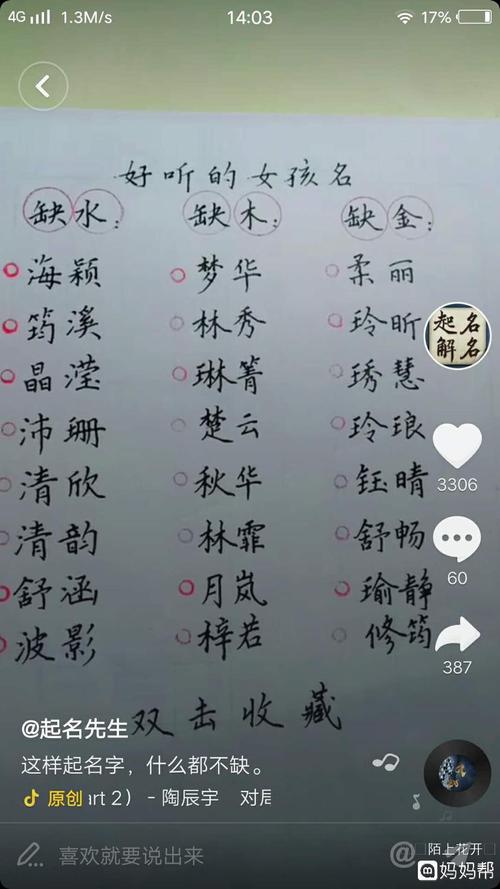 4G 1.3M/s 14:03 17%
好听的女孩名
缺水： 缺木： 缺金：
海颖 梦华 柔丽
筠溪 林秀 玲昕
晶滢 琳箐 琇慧
沛珊 楚云 玲琅
清欣 秋华 钰晴
清韵 林霏 舒畅
舒涵 月岚 瑜静
波影 梓若 修筠
起名
解名
3306
60
387
双击收藏
@起名先生
这样起名字，什么都不缺。
原创 ırt 2） - 陶辰宇 对辰
喜欢就要说出来
@
陌上花开
妈妈帮